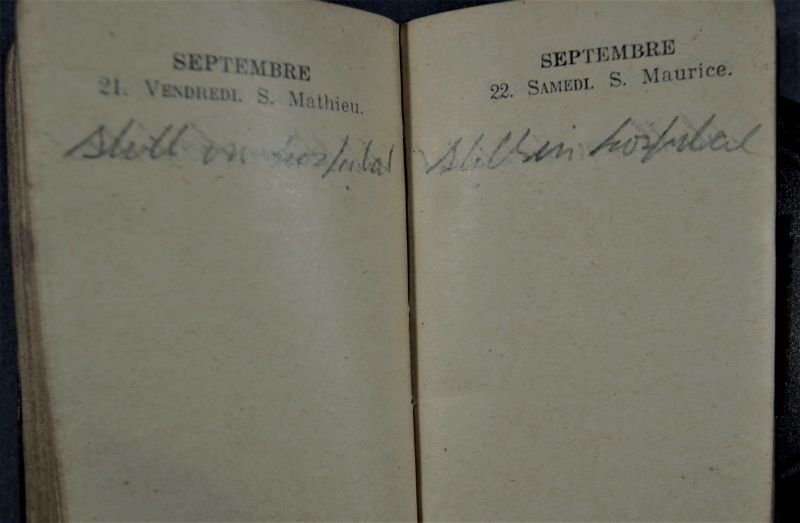 SEPTEMBRE
21. VENDREDI. S. Mathieu.
still in hospital
SEPTEMBRE
22. SAMEDI. S. Maurice.
still in hospital